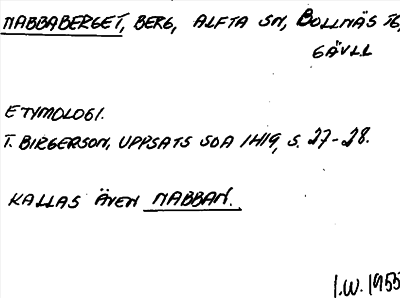 NABBABERGET, BERG, ALFTA SN, BOLLNÄS TG,
GÄVLL
ETYMOLOGI.
T. BIRGERSON, UPPSATS SOA 1419, S. 27-28.
KALLAS ÄVEN NABBAN.
I.W. 1955